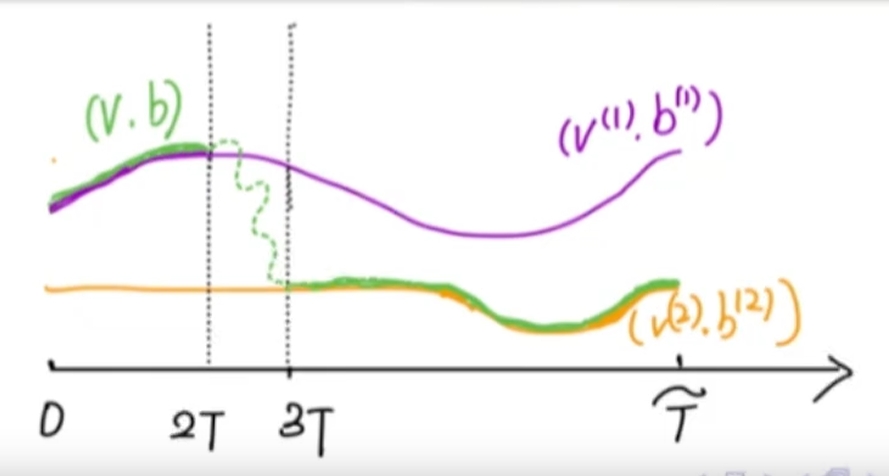 (v.b)
(v⁽¹⁾.b⁽¹⁾)
(v⁽²⁾.b⁽²⁾)
0 2T 3T T̃